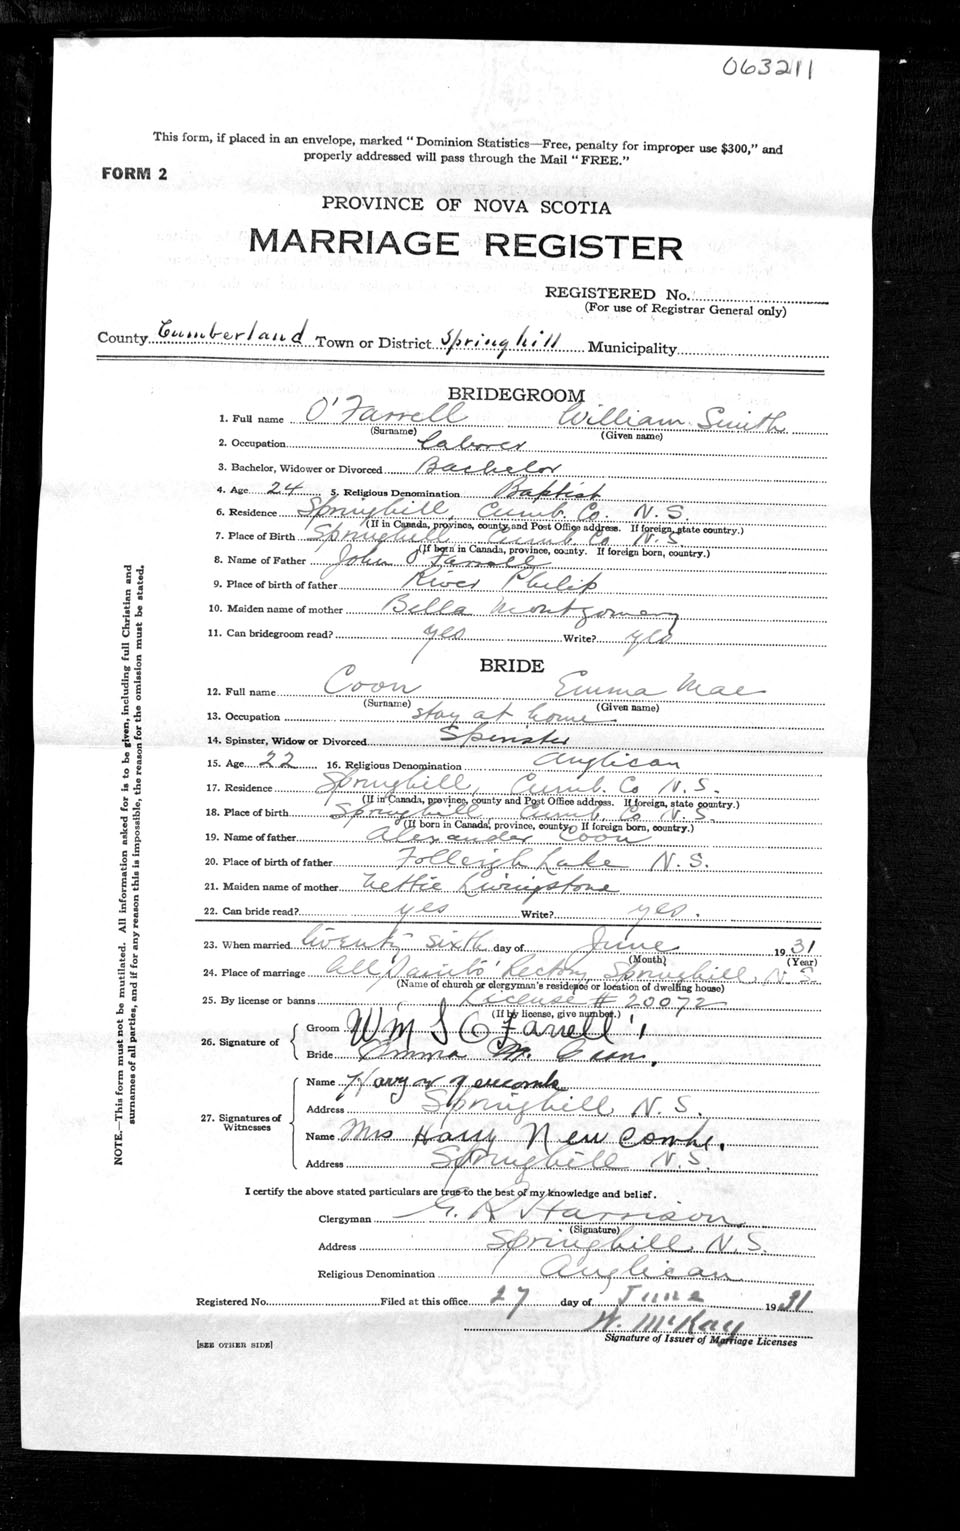 063211
This form, if placed in an envelope, marked "Dominion Statistics—Free, penalty for improper use $300," and
properly addressed will pass through the Mail "FREE."
FORM 2
PROVINCE OF NOVA SCOTIA
MARRIAGE REGISTER
REGISTERED No.
(For use of Registrar General only)
County Cumberland Town or District Springhill Municipality
BRIDEGROOM
1. Full name O'Farrell William Smith
(Surname) (Given name)
2. Occupation Laborer
3. Bachelor, Widower or Divorced Bachelor
4. Age 24 5. Religious Denomination Baptist
6. Residence Springhill, Cumb. Co. N.S.
(If in Canada, province, county and Post Office address. If foreign, state country.)
7. Place of Birth Springhill Cumb. Co N.S
(If born in Canada, province, county. If foreign born, country.)
8. Name of Father John O'Farrell
9. Place of birth of father River Philip
10. Maiden name of mother Bella Montgomery
11. Can bridegroom read? yes Write? yes
BRIDE
12. Full name Coon Emma Mae
(Surname) (Given name)
13. Occupation stay at home
14. Spinster, Widow or Divorced Spinster
15. Age 22 16. Religious Denomination Anglican
17. Residence Springhill, Cumb. Co N.S.
(If in Canada, province, county and Post Office address. If foreign, state country.)
18. Place of birth Springhill Cumb. Co N.S.
(If born in Canada, province, county. If foreign born, country.)
19. Name of father Alexander Coon
20. Place of birth of father Folleigh Lake N.S.
21. Maiden name of mother Nettie Livingstone
22. Can bride read? yes Write? yes.
23. When married twenty sixth day of June 1931
(Month) (Year)
24. Place of marriage All Saints' Rectory Springhill, N.S.
(Name of church or clergyman's residence or location of dwelling house)
25. By license or banns License # 20072
(If by license, give number.)
26. Signature of
Groom Wm S O'Farrell
Bride Emma M. Coon.
27. Signatures of Witnesses
Name Newcombe
Address Springhill N.S.
Name Mrs Harry Newcombe.
Address Springhill N.S.
I certify the above stated particulars are true to the best of my knowledge and belief.
Clergyman G. R. Harrison
(Signature)
Address Springhill, N.S.
Religious Denomination Anglican
Registered No. Filed at this office 27 day of June 1931
W. McKay
Signature of Issuer of Marriage Licenses
[SEE OTHER SIDE]
NOTE.—This form must not be mutilated. All information asked for is to be given, including full Christian and
surnames of all parties, and if for any reason this is impossible, the reason for the omission must be stated.